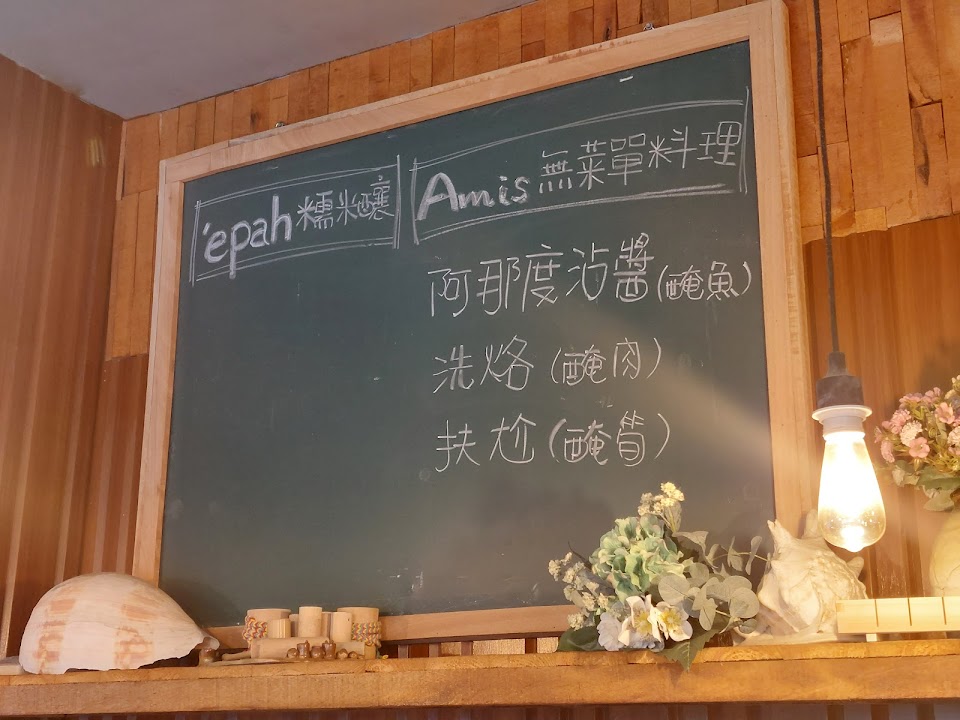 'epah糯米釀
Amis無菜單料理
阿那度沾醬(醃魚)
洗烙(醃肉)
扶尬(醃筍)